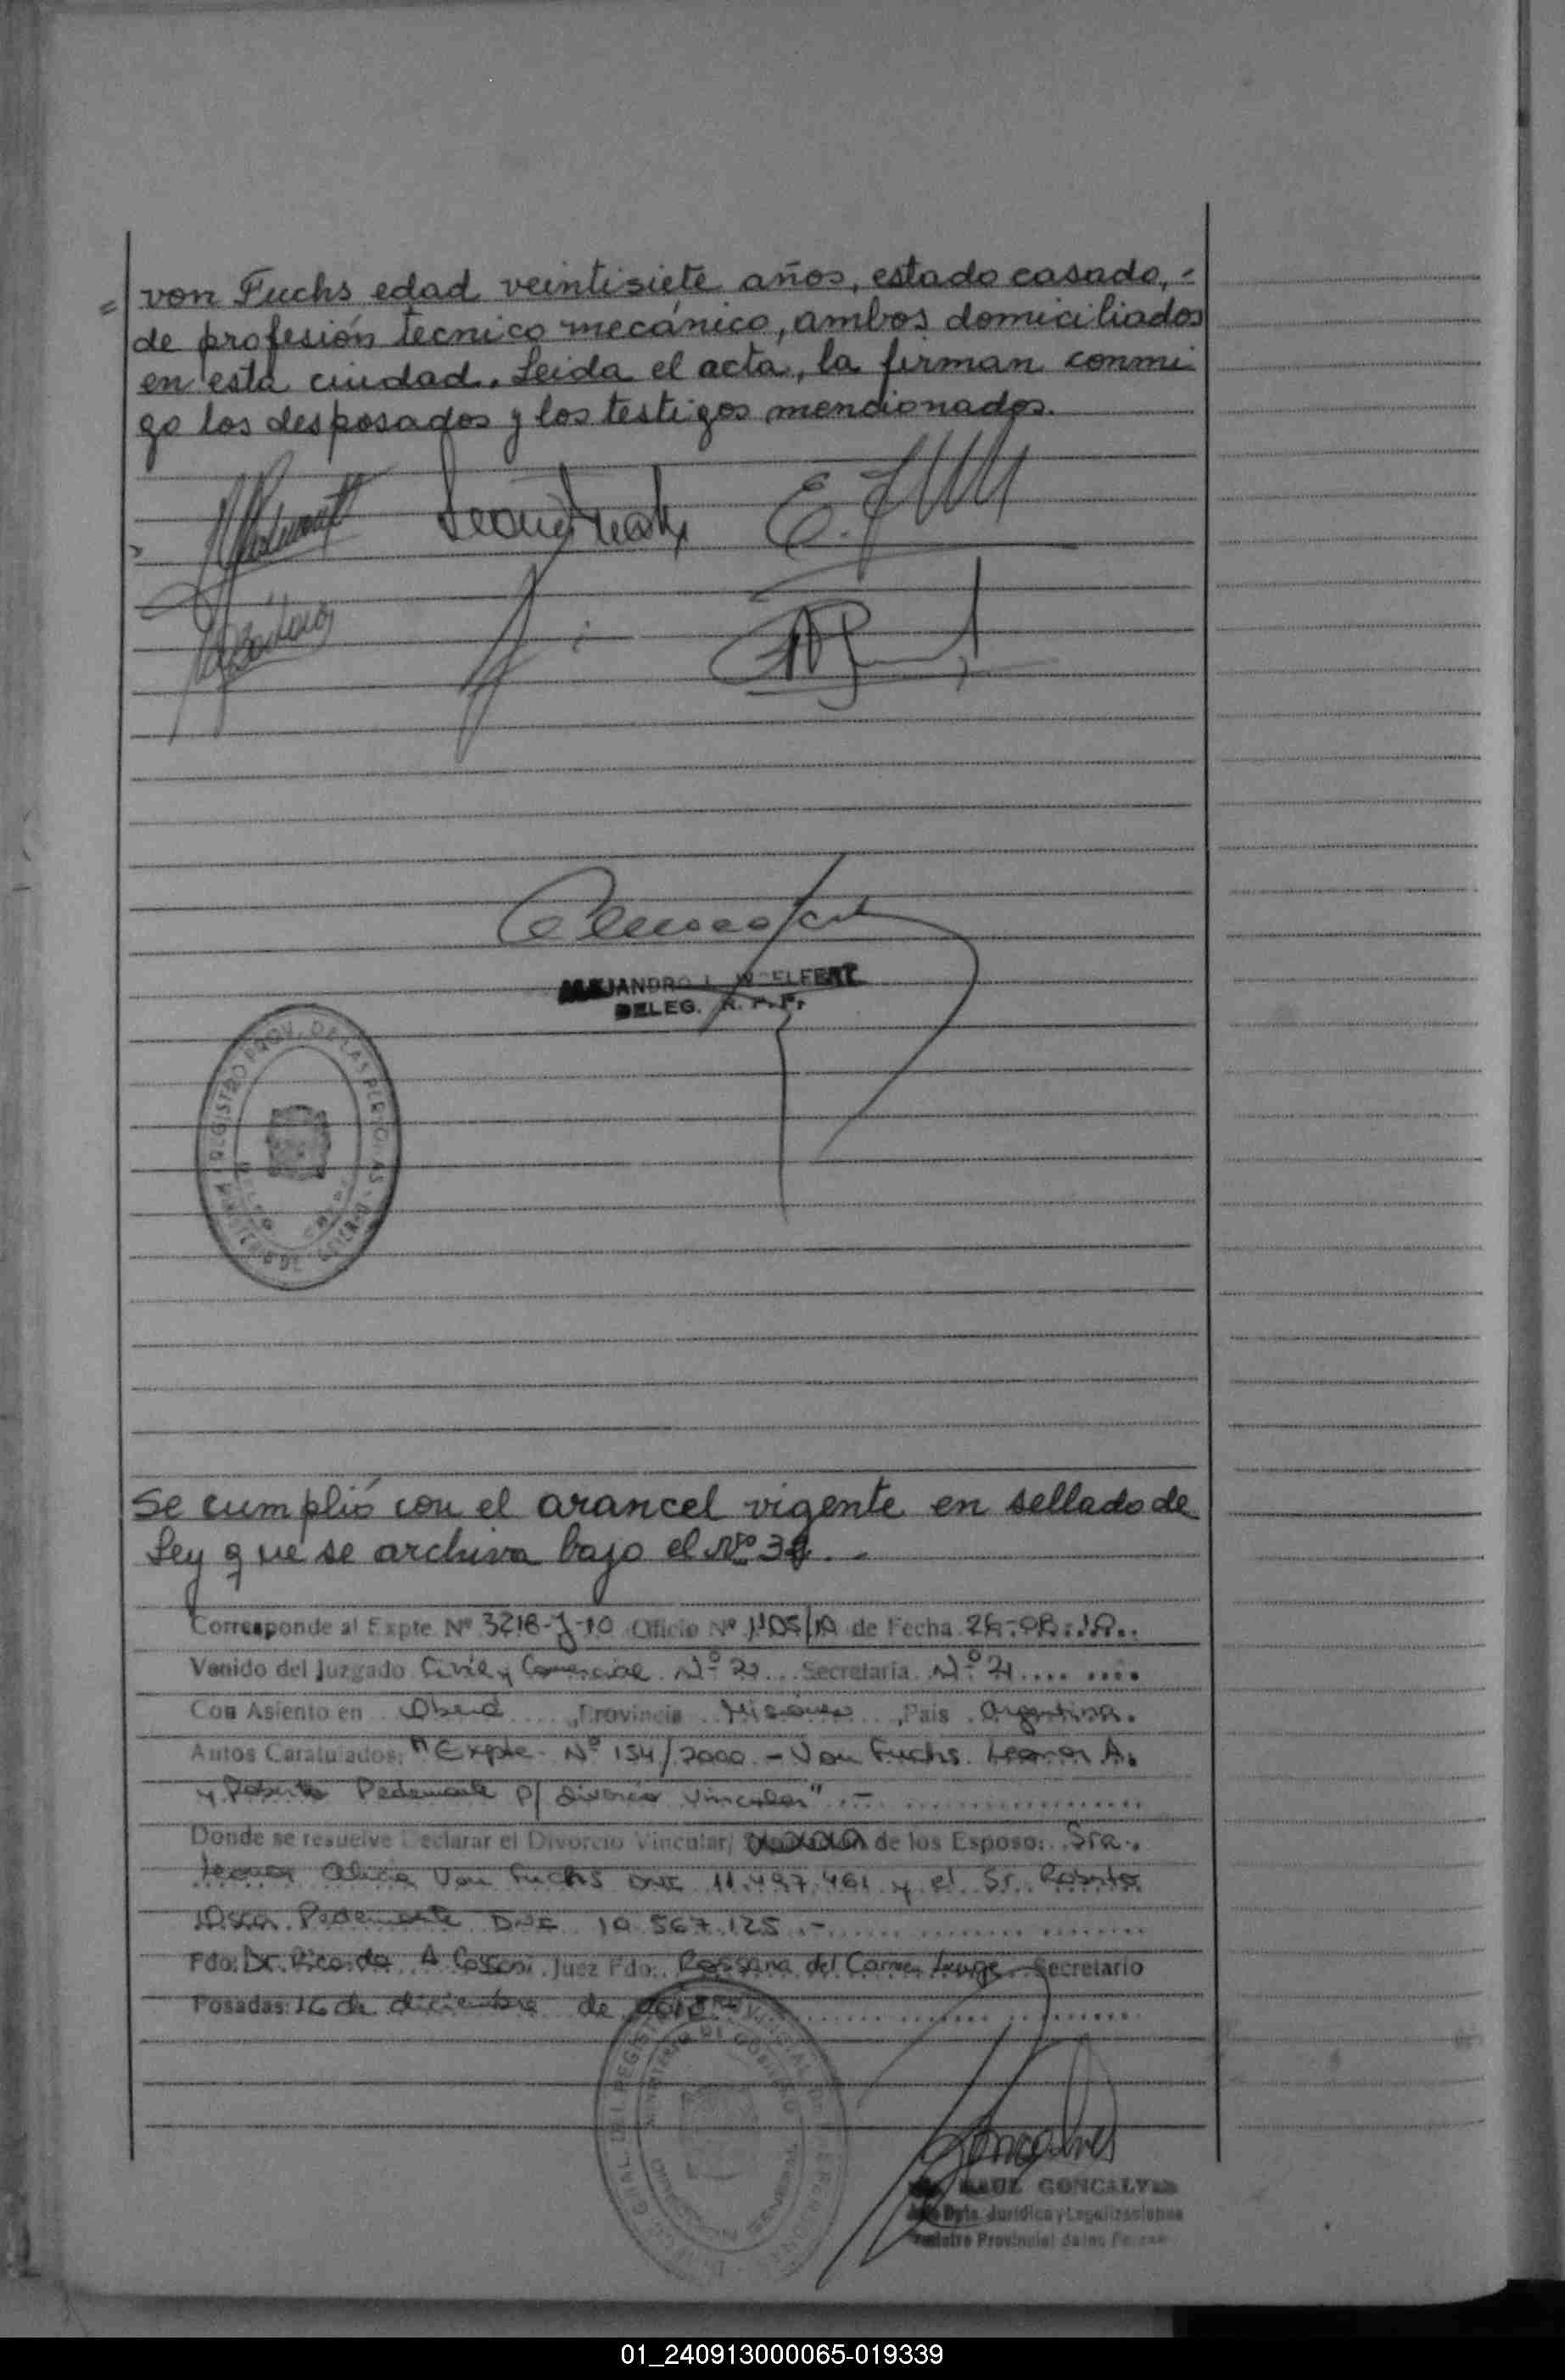 = von Fuchs edad veintisiete años, estado casado, -
de profesión tecnico mecánico, ambos domiciliados
en esta ciudad. Leida el acta, la firman conmi
go los desposados y los testigos mencionados.
ALEJANDRO L. WOELFERT
DELEG. R. P. P.
Se cumplió con el arancel vigente en sellado de
Ley que se archiva bajo el Nº
Corresponde al Expte Nº 3218-J-10 Oficio Nº de Fecha
Venido del Juzgado Civil y Comercial Nº 2 Secretaría Nº 2
Con Asiento en Oberá, Provincia Misiones, País Argentina.
Autos Caratulados: "Expte. Nº 154/2000 - Von Fuchs Leonor A.
y Roberto Pedemonte p/ divorcio vincular" .-
Donde se resuelve Declarar el Divorcio Vincular/ de los Esposo: Sra.
Leonor Alicia Von Fuchs DNI 11.497.461 y el Sr. Roberto
Oscar Pedemonte DNI 10.567.125.-
Fdo: Dr. Ricardo A Juez Fdo: Rossana del Carmen Secretario
Posadas: 16 de diciembre de 2010
Goncalves
RAUL GONCALVES
Dpto. Jurídica y Legalizaciones
Registro Provincial de las Personas
01_240913000065-019339